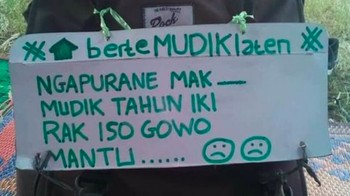 berteMUDIKlaten
NGAPURANE MAK —
MUDIK TAHUN IKI
RAK ISO GOWO
MANTU......